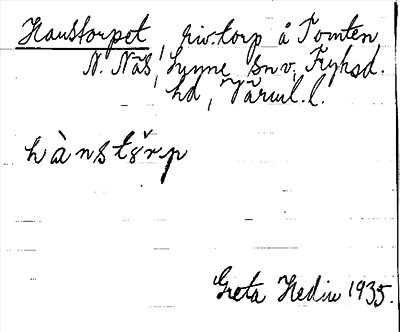 Hanstorpet, riv. torp å Tomten
N. Näs, Lysne sn v. Fryksd.
hd, Värml. l.
hànstǒrp
Greta Hedin 1935.